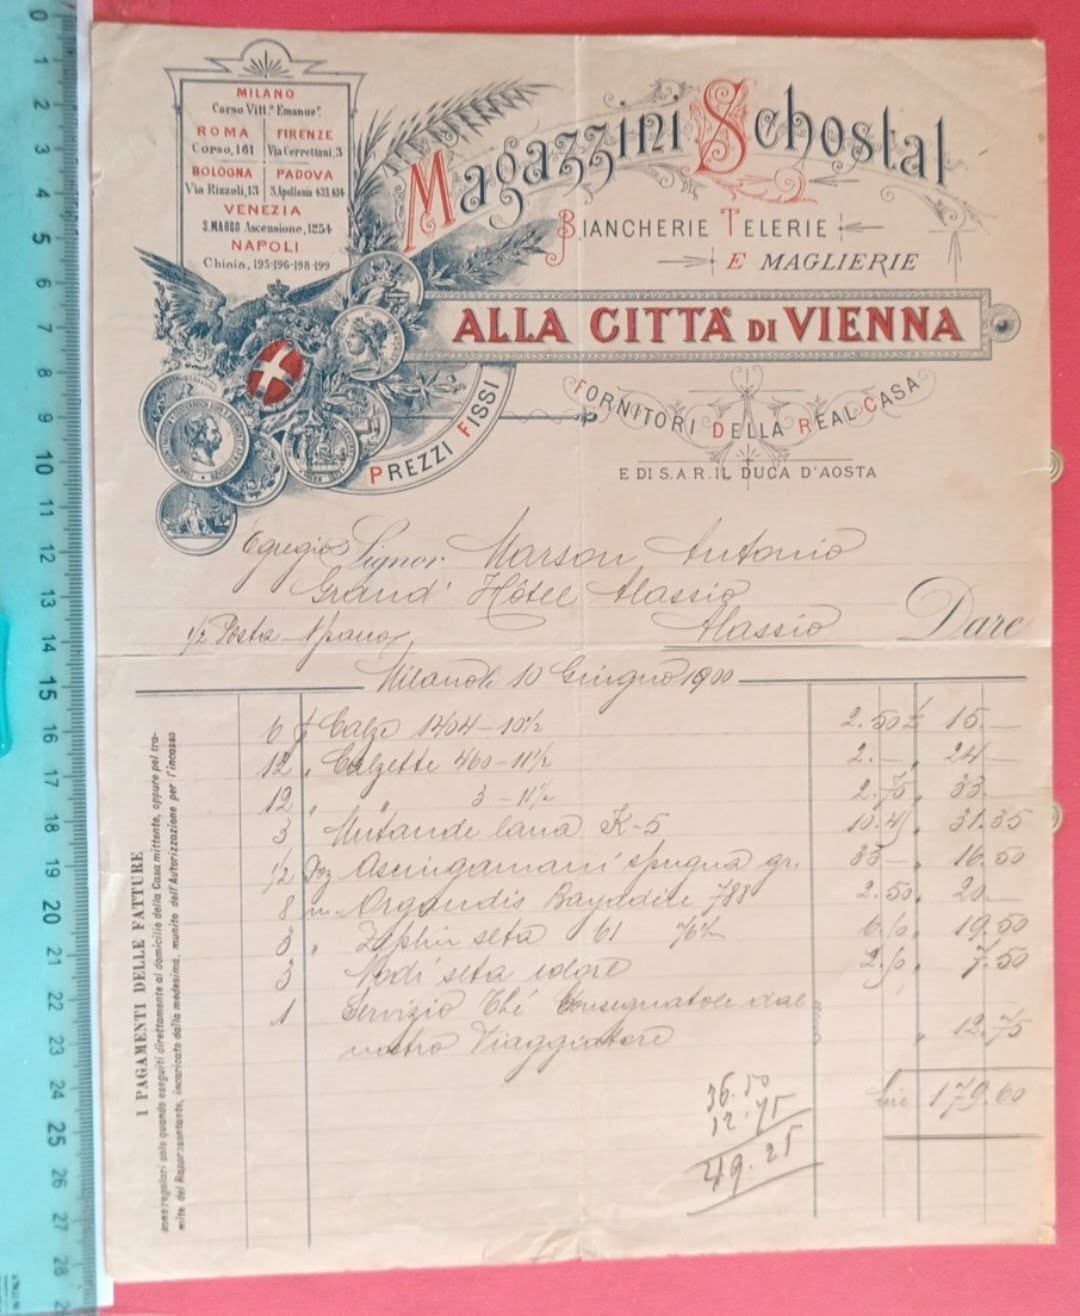 MILANO
Corso Vitt.º Emanue.º
ROMA
Corso, 161
FIRENZE
Via Cerrettani, 3
BOLOGNA
Via Rizzoli, 13
PADOVA
S. Apollonia 433.434
VENEZIA
S. MARCO Ascensione, 1254
NAPOLI
Chiaia, 195-196-198-199
Magazzini Schostal
BIANCHERIE TELERIE
E MAGLIERIE
ALLA CITTÀ DI VIENNA
PREZZI FISSI
FORNITORI DELLA REAL CASA
E DI S.A.R. IL DUCA D'AOSTA
Egregio Signor Marson Antonio
Grand' Hôtel Alassio
1/2 Posta Alassio Dare
Milano li 10 Giugno 1900
6 Calze 1404-10½ 2.50 £ 15.—
12 " Calzette 460-11½ 2.— " 24—
12 " " 3-11½ 2.75 " 33.
3 Mutande lana K-5 10.45 " 31.35
1/2 Dz Asciugamani spugna gr. 33— " 16.50
8 m. Organdis Bayadère 788 2.50 " 20—
3 " Zephir seta 61 6.50 " 19.50
3 Nodi seta colore 2.50 " 7.50
1 Servizio Thè Consegnatole dal
nostro Viaggiatore " 12.75
Lire 179.60
36.50
12.75
49.25
I PAGAMENTI DELLE FATTURE
sono regolari solo quando eseguiti direttamente al domicilio della Casa mittente, oppure pel tra-
mite del Rappresentante, incaricato dalla medesima, munito dell'Autorizzazione per l'incasso
0
1
2
3
4
5
6
7
8
9
10
11
12
13
14
15
16
17
18
19
20
21
22
23
24
25
26
27
28